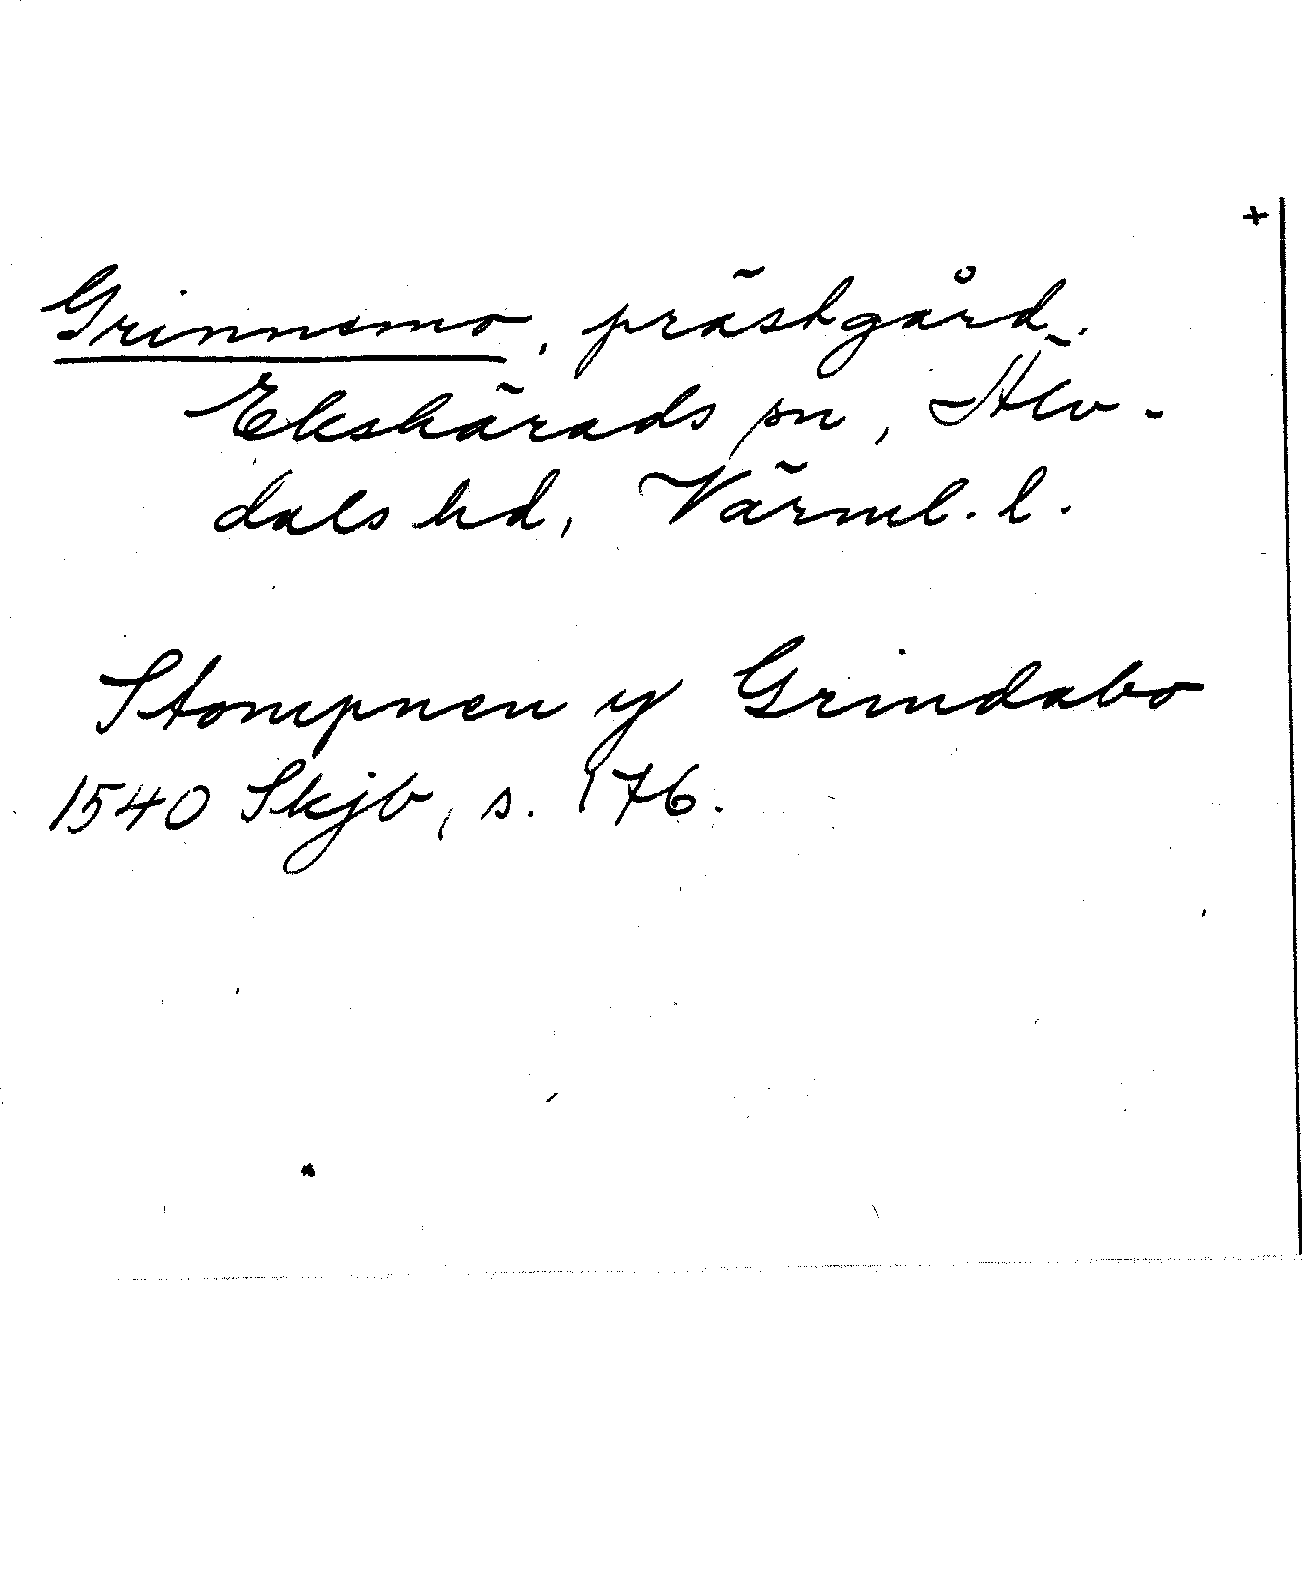 +
Grinnemo, prästgård.
Ekshärads sn, Älv-
dals hd, Värml. l.
Stompnen y Grindabo
1540 Skjb, s. 176.